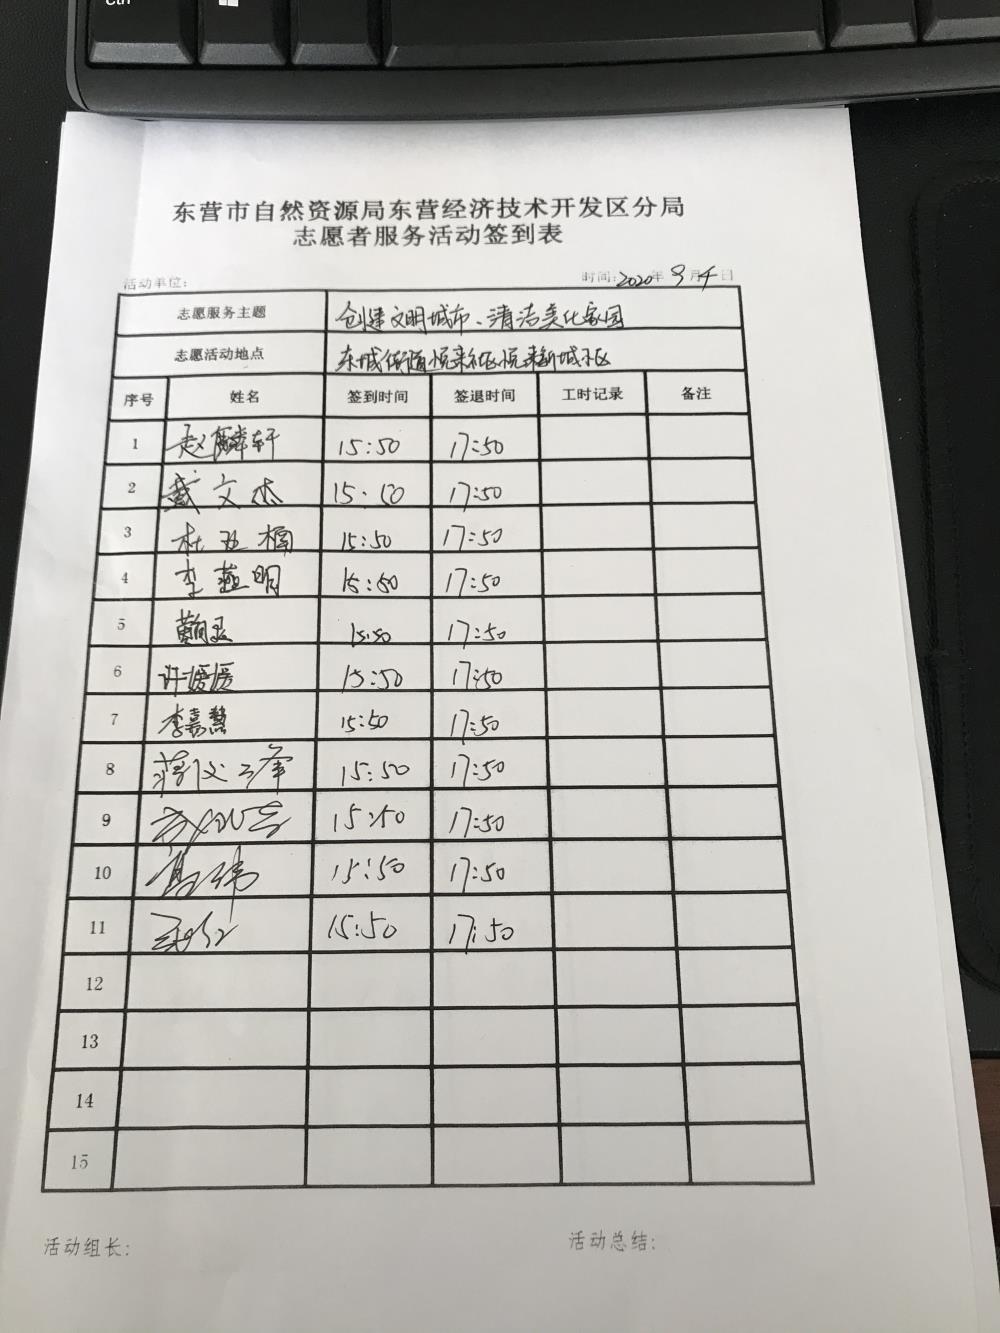 Ctrl
东营市自然资源局东营经济技术开发区分局
志愿者服务活动签到表
活动单位: 时间:2020年9月4日
志愿服务主题 创建文明城市、清洁美化家园
志愿活动地点 东城街道悦来社区悦来新城小区
序号 姓名 签到时间 签退时间 工时记录 备注
1 赵麟轩 15:50 17:50
2 戴文杰 15:50 17:50
3 杜 楠 15:50 17:50
4 李 明 15:50 17:50
5 15:50 17:50
6 许媛媛 15:50 17:50
7 李嘉慧 15:50 17:50
8 蒋 15:50 17:50
9 15:50 17:50
10 高伟 15:50 17:50
11 15:50 17:50
12
13
14
15
活动组长: 活动总结: